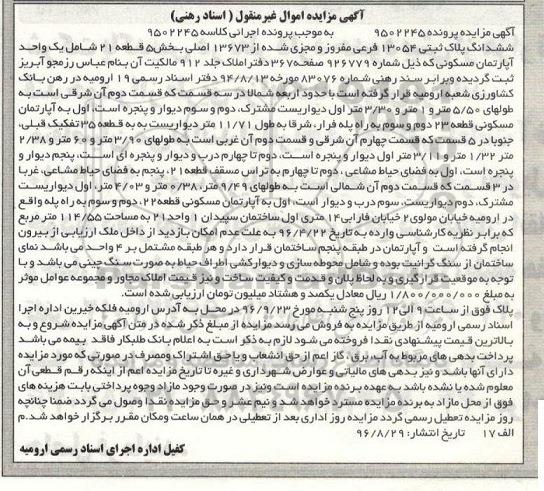 آگهی مزایده اموال غیرمنقول ( اسناد رهنی)
آگهی مزایده پرونده ۹۵۰۲۲۴۵ به موجب پرونده اجرائی کلاسه ۹۵۰۲۲۴۵
ششدانگ پلاک ثبتی ۱۳۰۵۴ فرعی مفروز و مجزی شده از ۱۳۶۷۳ اصلی بخش ۵ قطعه ۲۱ شامل یک واحد
آپارتمان مسکونی که ذیل شماره ۹۲۶۷۷۹ صفحه ۳۶۷ دفتر املاک جلد ۹۱۲ مالکیت آن بنام عباس رزمجو آبریز
ثبت گردیده و برابر سند رهنی شماره ۸۳۰۷۶ مورخه ۹۴/۸/۱۳ دفتر اسناد رسمی ۱۹ ارومیه در رهن بانک
کشاورزی شعبه ارومیه قرار گرفته است با حدود اربعه شمالا در سه قسمت که قسمت دوم آن شرقی است به
طولهای ۵/۵۰ متر و ۱ متر و ۳/۳۰ متر اول دیواریست مشترک، دوم و سوم دیوار و پنجره است، اول به آپارتمان
مسکونی قطعه ۲۳ دوم و سوم به راه پله فرار، شرقا به طول ۱۱/۷۱ متر دیواریست به به قطعه ۳۵ تفکیک قبلی،
جنوبا در ۵ قسمت که قسمت چهارم آن شرقی و قسمت دوم آن غربی است به طولهای ۳/۹۰ متر و ۶۰ متر و ۲/۳۸
متر ۱/۳۲ متر و ۳/۱۱ متر اول دیوار و پنجره است، دوم تا چهارم درب و دیوار و پنجره ای است، پنجم دیوار و
پنجره است، اول به فضای حیاط مشاعی، دوم تا چهارم به تراس مسقف قطعه ۲۱، پنجم به فضای حیاط مشاعی، غربا
در ۳ قسمت که قسمت دوم آن شمالی است به طولهای ۹/۴۹ متر، ۰/۳۸ متر و ۲/۰۳ متر، اول دیواریست
مشترک، دوم دیواریست، سوم درب و دیوار است، اول به آپارتمان مسکونی قطعه ۲۲، دوم و سوم به راه پله واقع
در ارومیه خیابان مولوی ۲ خیابان فارابی ۱۴ متری اول ساختمان سپیدان ۱ واحد ۲۱ به مساحت ۱۱۴/۵۵ متر مربع
که برابر نظریه کارشناسی وارده به تاریخ ۹۶/۴/۲۲ به علت عدم امکان بازدید از داخل ملک ارزیابی از بیرون
انجام گرفته است و آپارتمان در طبقه پنجم ساختمان قرار دارد و هر طبقه مشتمل بر ۴ واحد می باشد نمای
ساختمان از سنگ گرانیت بوده و شامل محوطه سازی و دیوارکشی اطراف حیاط به صورت سنگ چینی می باشد و با
توجه به موقعیت قرارگیری و به لحاظ بلان و قدمت و کیفیت ساخت و نیز قیمت املاک مجاور و مجموعه عوامل موثر
به مبلغ ۱/۸۰۰/۰۰۰/۰۰۰ ریال معادل یکصد و هشتاد میلیون تومان ارزیابی شده است.
پلاک فوق از ساعت ۹ الی ۱۲ روز پنج شنبه مورخ ۹۶/۹/۲۳ در محل به آدرس ارومیه فلکه خیرین اداره اجرا
اسناد رسمی ارومیه از طریق مزایده به فروش می رسد مزایده از مبلغ ذکر شده در متن آگهی مزایده شروع و به
بالاترین قیمت پیشنهادی نقدا فروخته می شود لازم به ذکر است به اعلام بانک طلبکار فاقد بیمه می باشد
پرداخت بدهی های مربوط به آب، برق، گاز اعم از حق انشعاب و یا حق اشتراک و مصرف در صورتی که مورد مزایده
دارای آنها باشد و نیز بدهی های مالیاتی و عوارض شهرداری و غیره تا تاریخ مزایده اعم از اینکه رقم قطعی آن
معلوم شده یا نشده باشد به عهده برنده مزایده است ونیز در صورت وجود مازاد وجوه پرداختی بابت هزینه های
فوق از محل مازاد به برنده مزایده مسترد خواهد شد و نیم عشر و حق مزایده نقدا وصول می گردد ضمنا چنانچه
روز مزایده تعطیل رسمی گردد مزایده روز اداری بعد از تعطیلی در همان ساعت ومکان مقرر برگزار خواهد شد. م
الف ۱۷ تاریخ انتشار: ۹۶/۸/۲۹
کفیل اداره اجرای اسناد رسمی ارومیه